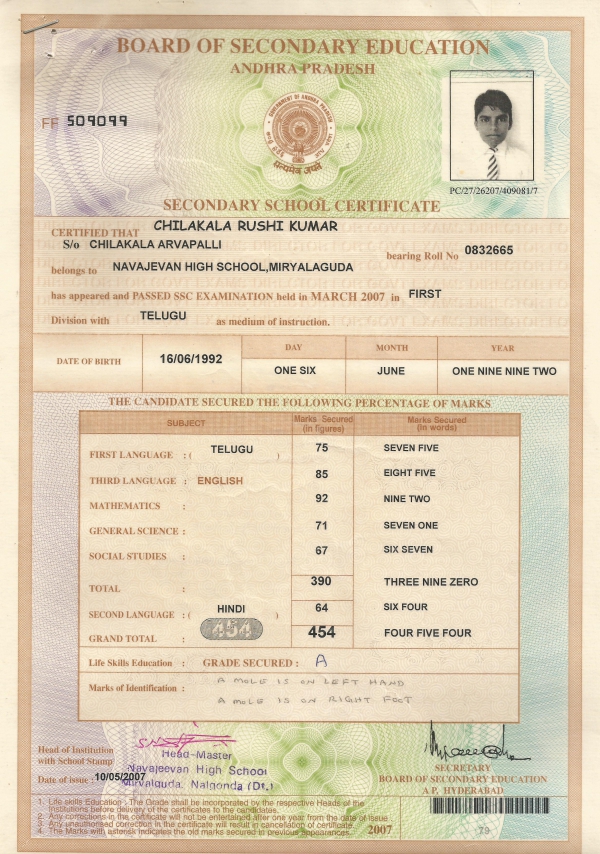 BOARD OF SECONDARY EDUCATION
ANDHRA PRADESH
FF 509099
PC/27/26207/409081/7
SECONDARY SCHOOL CERTIFICATE
CERTIFIED THAT CHILAKALA RUSHI KUMAR
S/o CHILAKALA ARVAPALLI bearing Roll No 0832665
belongs to NAVAJEVAN HIGH SCHOOL,MIRYALAGUDA
has appeared and PASSED SSC EXAMINATION held in MARCH 2007 in FIRST
Division with TELUGU as medium of instruction.
DATE OF BIRTH 16/06/1992 DAY MONTH YEAR
ONE SIX JUNE ONE NINE NINE TWO
THE CANDIDATE SECURED THE FOLLOWING PERCENTAGE OF MARKS
SUBJECT Marks Secured (in figures) Marks Secured (in words)
FIRST LANGUAGE : ( TELUGU ) 75 SEVEN FIVE
THIRD LANGUAGE : ENGLISH 85 EIGHT FIVE
MATHEMATICS : 92 NINE TWO
GENERAL SCIENCE : 71 SEVEN ONE
SOCIAL STUDIES : 67 SIX SEVEN
TOTAL : 390 THREE NINE ZERO
SECOND LANGUAGE : ( HINDI ) 64 SIX FOUR
GRAND TOTAL : 454 454 FOUR FIVE FOUR
Life Skills Education : GRADE SECURED : A
Marks of Identification : A MOLE IS ON LEFT HAND
A MOLE IS ON RIGHT FOOT
Head of Institution
with School Stamp
Head-Master
Navajeevan High School
Miryalguda, Nalgonda (Dt.)
Date of issue : 10/05/2007
SECRETARY
BOARD OF SECONDARY EDUCATION
A.P. HYDERABAD
1. Life skills Education : The Grade shall be incorporated by the respective Heads of the
Institutions before delivery of the certificates to the candidates.
2. Any corrections in the certificate will not be entertained after one year from the date of issue
3. Any unauthorised correction in the certificate will result in cancellation of certificate.
4. The Marks with asterisk indicates the old marks secured in previous appearances. 2007 79